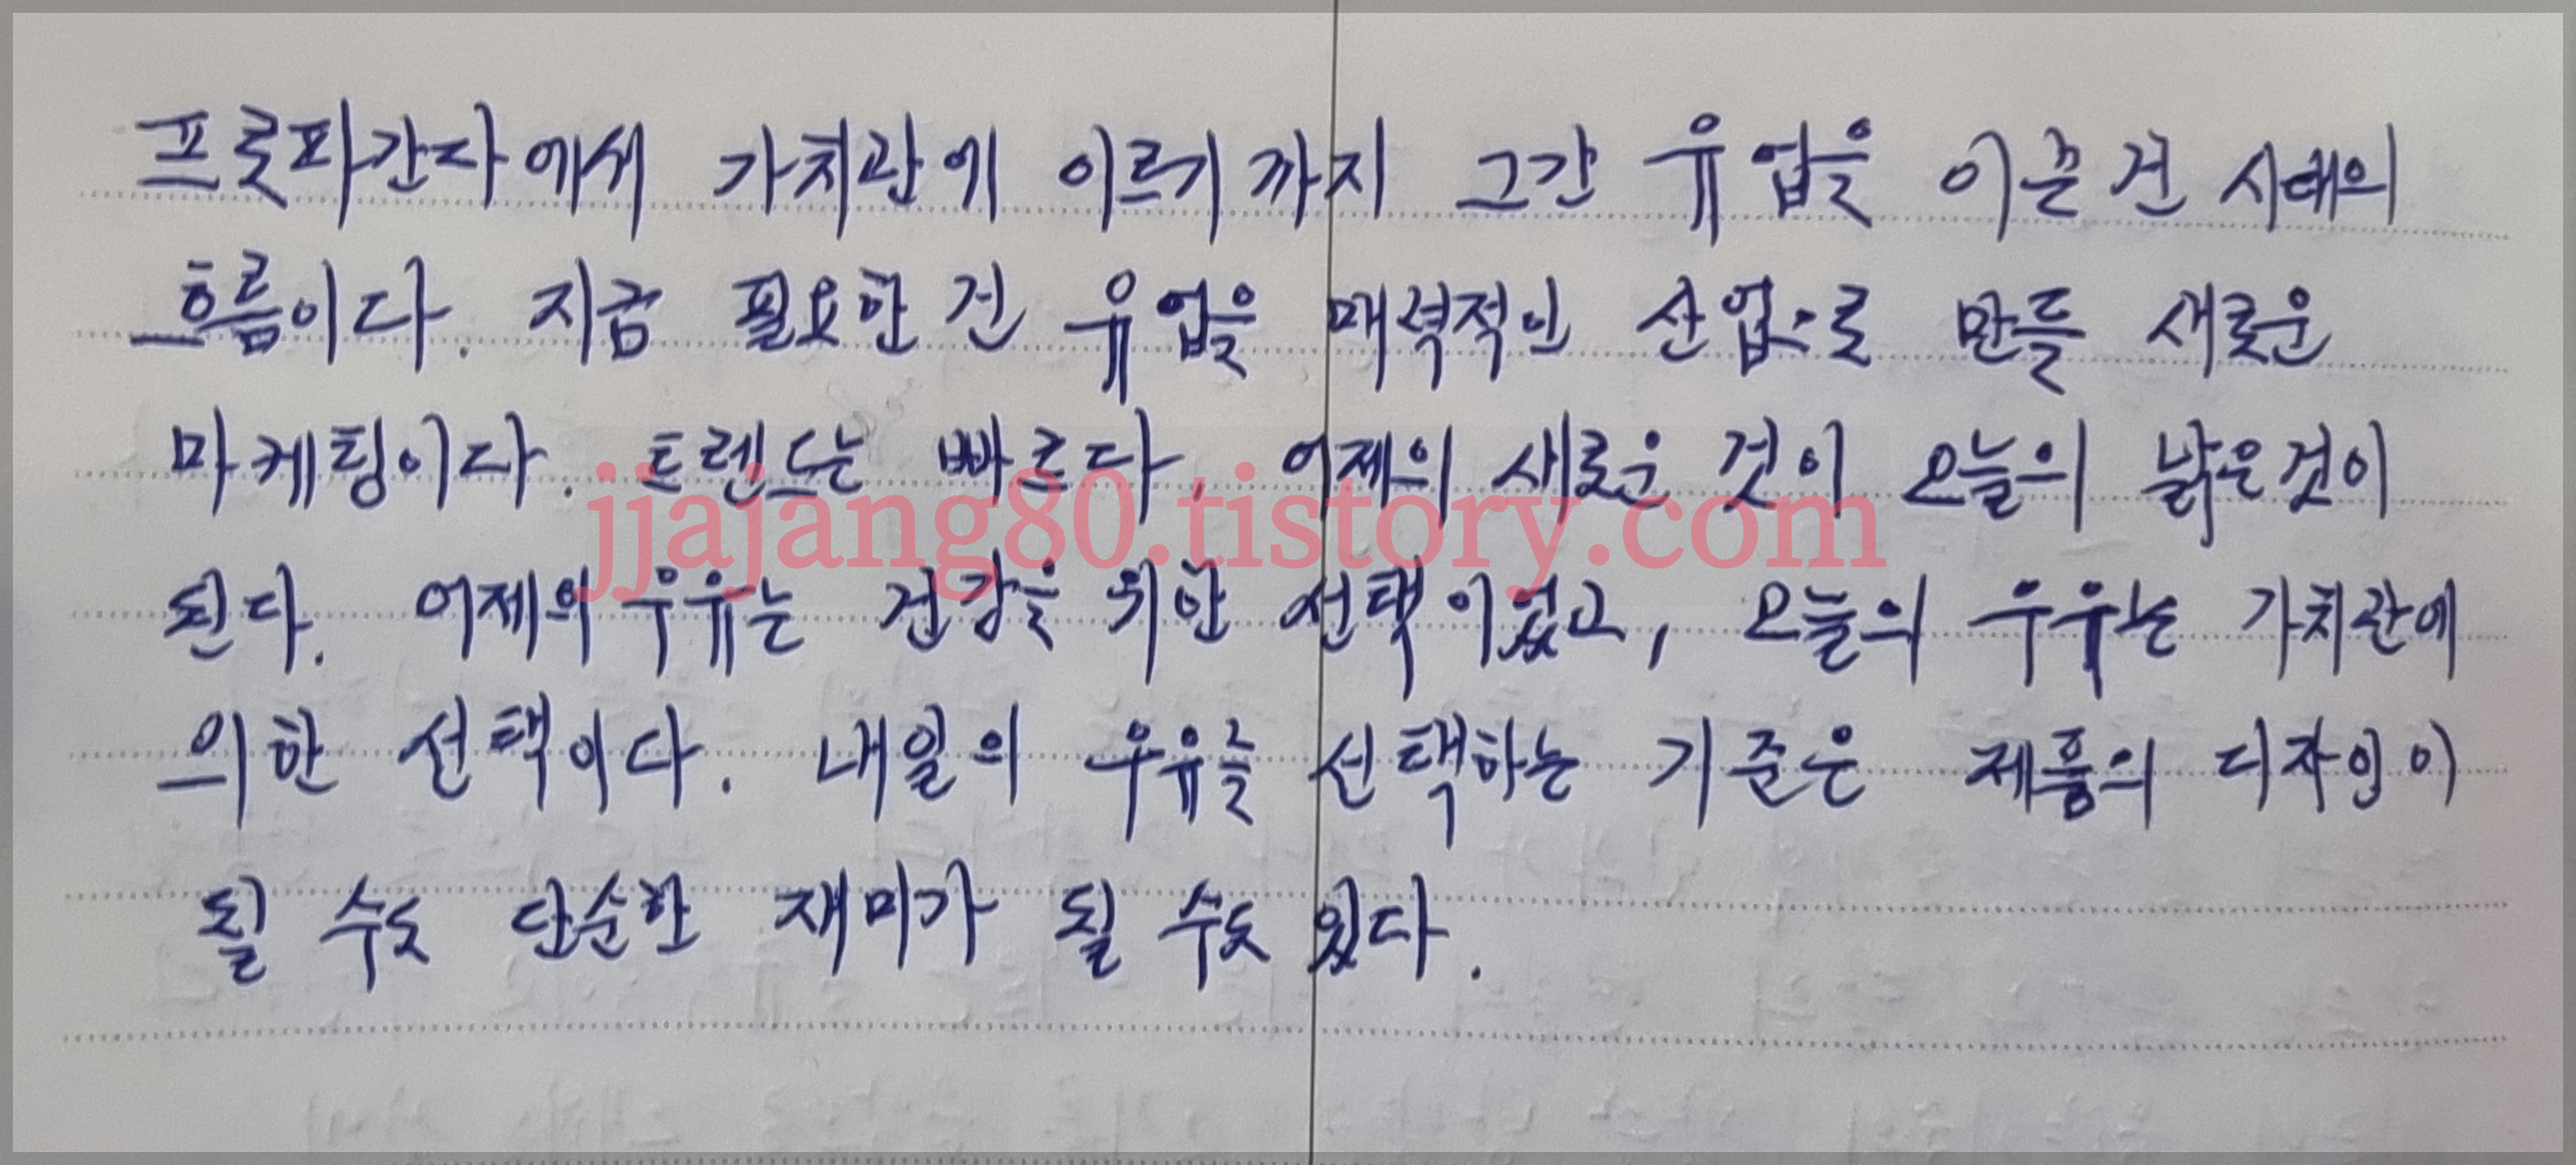 프로파간다에서 가치관에 이르기까지 그간 유업을 이끈 건 시대의
흐름이다. 지금 필요한 건 유업을 매력적인 산업으로 만들 새로운
마케팅이다. 트렌드는 빠르다. 어제의 새로운 것이 오늘의 낡은것이
jjajang80.tistory.com
된다. 어제의 우유는 건강을 위한 선택이었고, 오늘의 우유는 가치관에
의한 선택이다. 내일의 우유를 선택하는 기준은 제품의 디자인이
될 수도 단순한 재미가 될 수도 있다.